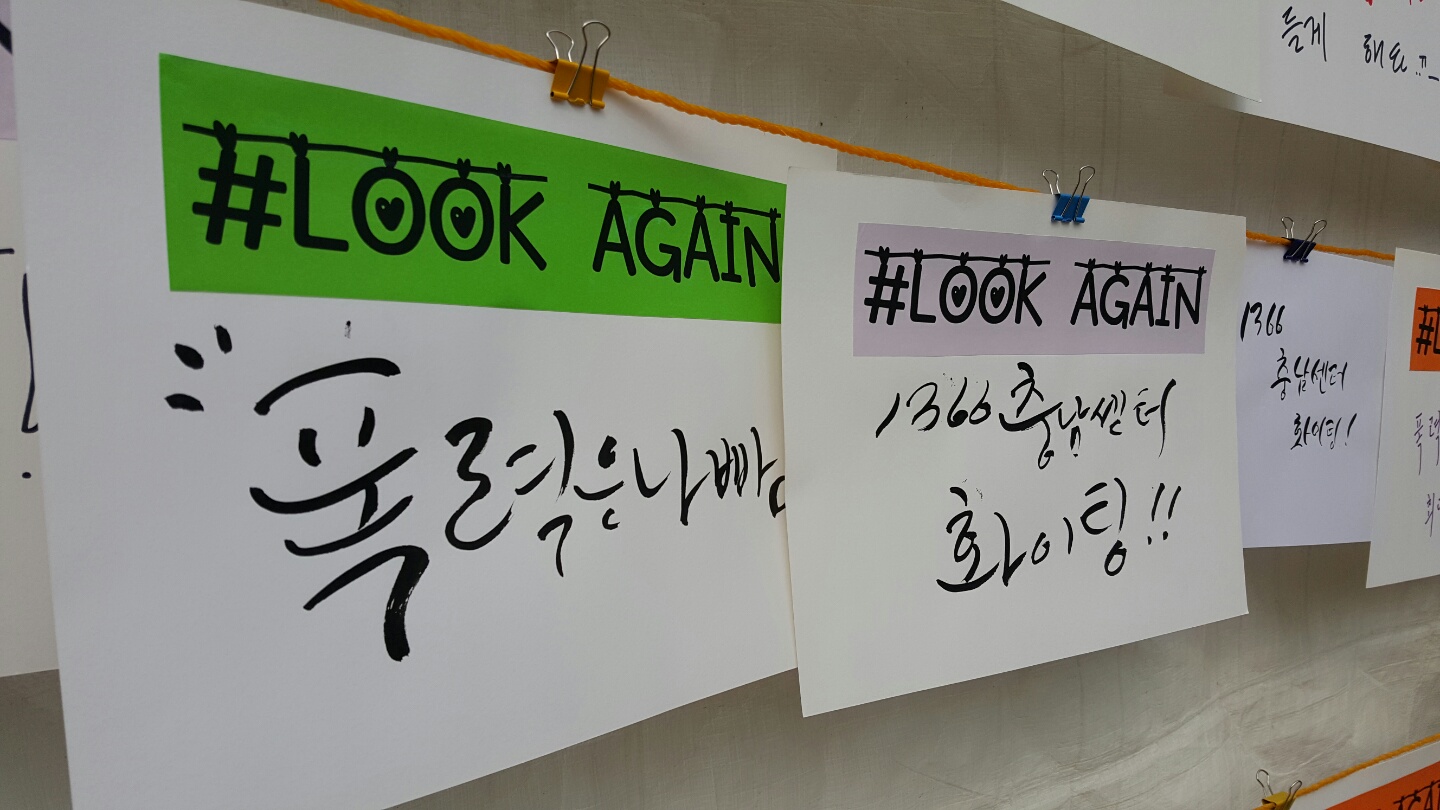 들게 해요..
#LOOK AGAIN
폭력은나빠
#LOOK AGAIN
1366충남센터
화이팅!!
1366
충남센터
화이팅!
폭력